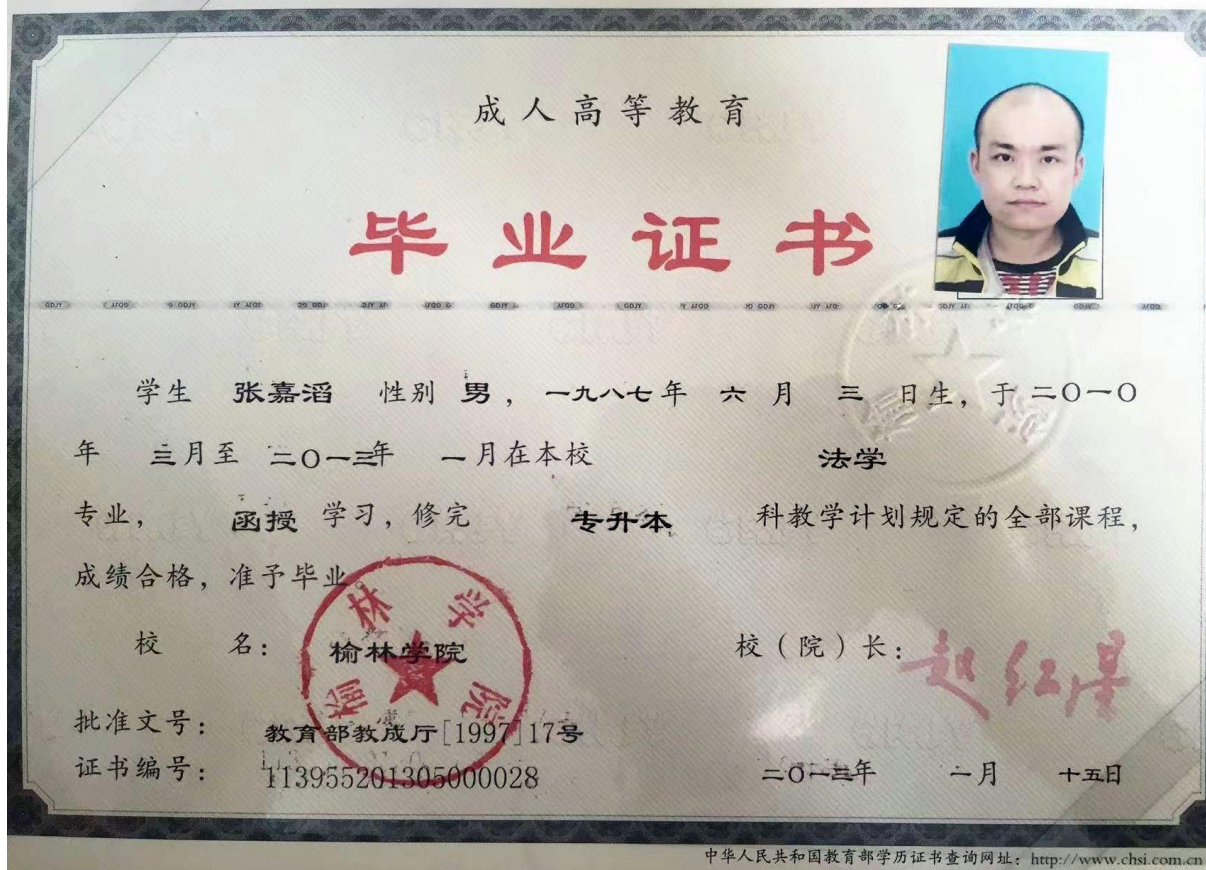 成人高等教育
毕业证书
学生 张嘉滔 性别 男，一九八七年 六 月 三 日生，于二〇一〇
年 三月至 二〇一三年 一月在本校 法学
专业， 函授 学习，修完 专升本 科教学计划规定的全部课程，
成绩合格，准予毕业。
校 名： 榆林学院 校（院）长：
榆林学院
批准文号： 教育部教成厅[1997]17号
证书编号： 113955201305000028 二〇一三年 一月 十五日
中华人民共和国教育部学历证书查询网址：http://www.chsi.com.cn